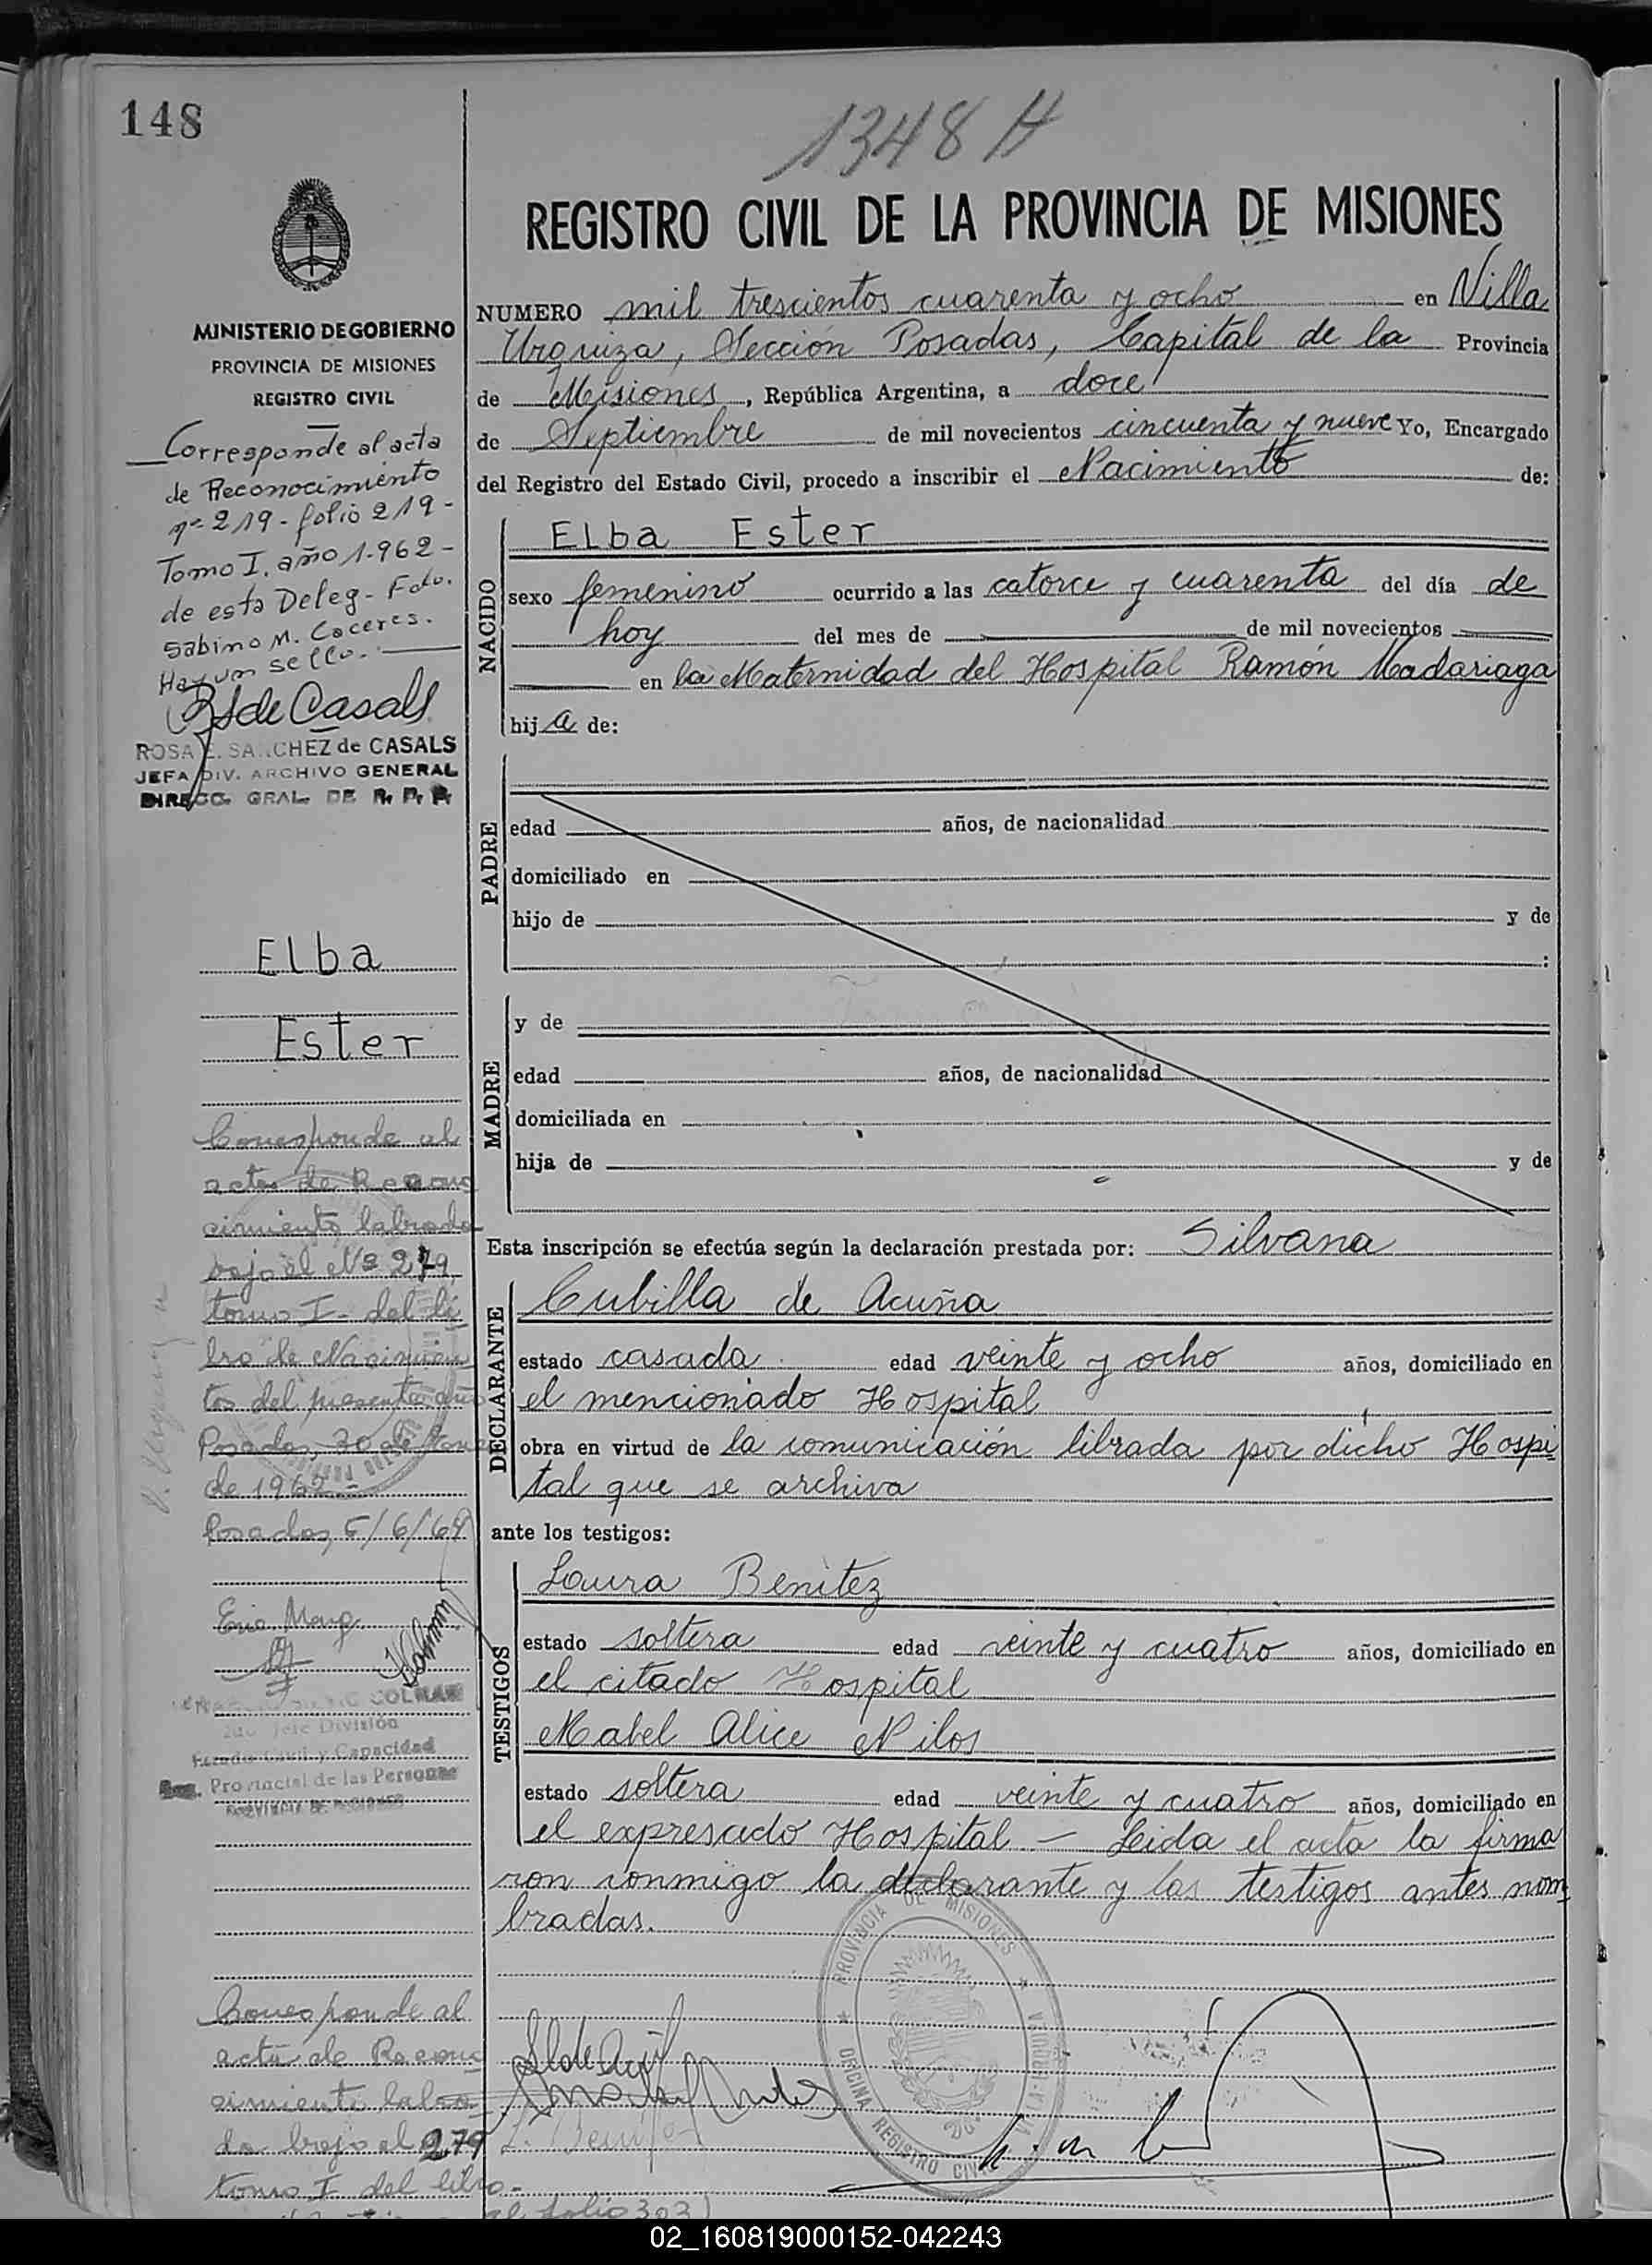 148
1348 H
REGISTRO CIVIL DE LA PROVINCIA DE MISIONES
MINISTERIO DE GOBIERNO
PROVINCIA DE MISIONES
REGISTRO CIVIL
Corresponde al acta
de Reconocimiento
nº 219 - folio 219 -
Tomo I. año 1.962 -
de esta Deleg - Fdo.
Sabino M. Caceres.
Hay un sello.
RS de Casals
ROSA E. SANCHEZ de CASALS
JEFA DIV. ARCHIVO GENERAL
DIRECC. GRAL. DE R. P. P.
Elba
Ester
Corresponde al
acta de Recono
cimiento labrada
bajo el Nº 279
tomo I - del li
bro de Nacimien
tos del presente año
Posadas, 30 de
de 1962 -
Posadas, 5/6/64
2do Jefe División
Estado Civil y Capacidad
Reg. Provincial de las Personas
PROVINCIA DE MISIONES
Corresponde al
acta de Recono
cimiento labra
da bajo el 279
tomo I del libro
al folio 303)
NUMERO mil trescientos cuarenta y ocho en Villa
Urquiza, Sección Posadas, Capital de la Provincia
de Misiones, República Argentina, a doce
de Septiembre de mil novecientos cincuenta y nueve Yo, Encargado
del Registro del Estado Civil, procedo a inscribir el Nacimiento de:
NACIDO
Elba Ester
sexo femenino ocurrido a las catorce y cuarenta del día de
hoy del mes de de mil novecientos
en la Maternidad del Hospital Ramón Madariaga
hija de:
PADRE
edad años, de nacionalidad
domiciliado en
hijo de y de
:
MADRE
y de
edad años, de nacionalidad
domiciliada en
hija de y de
Esta inscripción se efectúa según la declaración prestada por: Silvana
DECLARANTE
Cubilla de Acuña
estado casada edad veinte y ocho años, domiciliado en
el mencionado Hospital
obra en virtud de la comunicación librada por dicho Hospi
tal que se archiva
ante los testigos:
TESTIGOS
Laura Benitez
estado soltera edad veinte y cuatro años, domiciliado en
el citado Hospital
Mabel Alice Nilos
estado soltera edad veinte y cuatro años, domiciliado en
el expresado Hospital - Leida el acta la firma
ron conmigo la declarante y las testigos antes nom
bradas.
PROVINCIA DE MISIONES
OFICINA REGISTRO CIVIL
VILLA URQUIZA
02_160819000152-042243